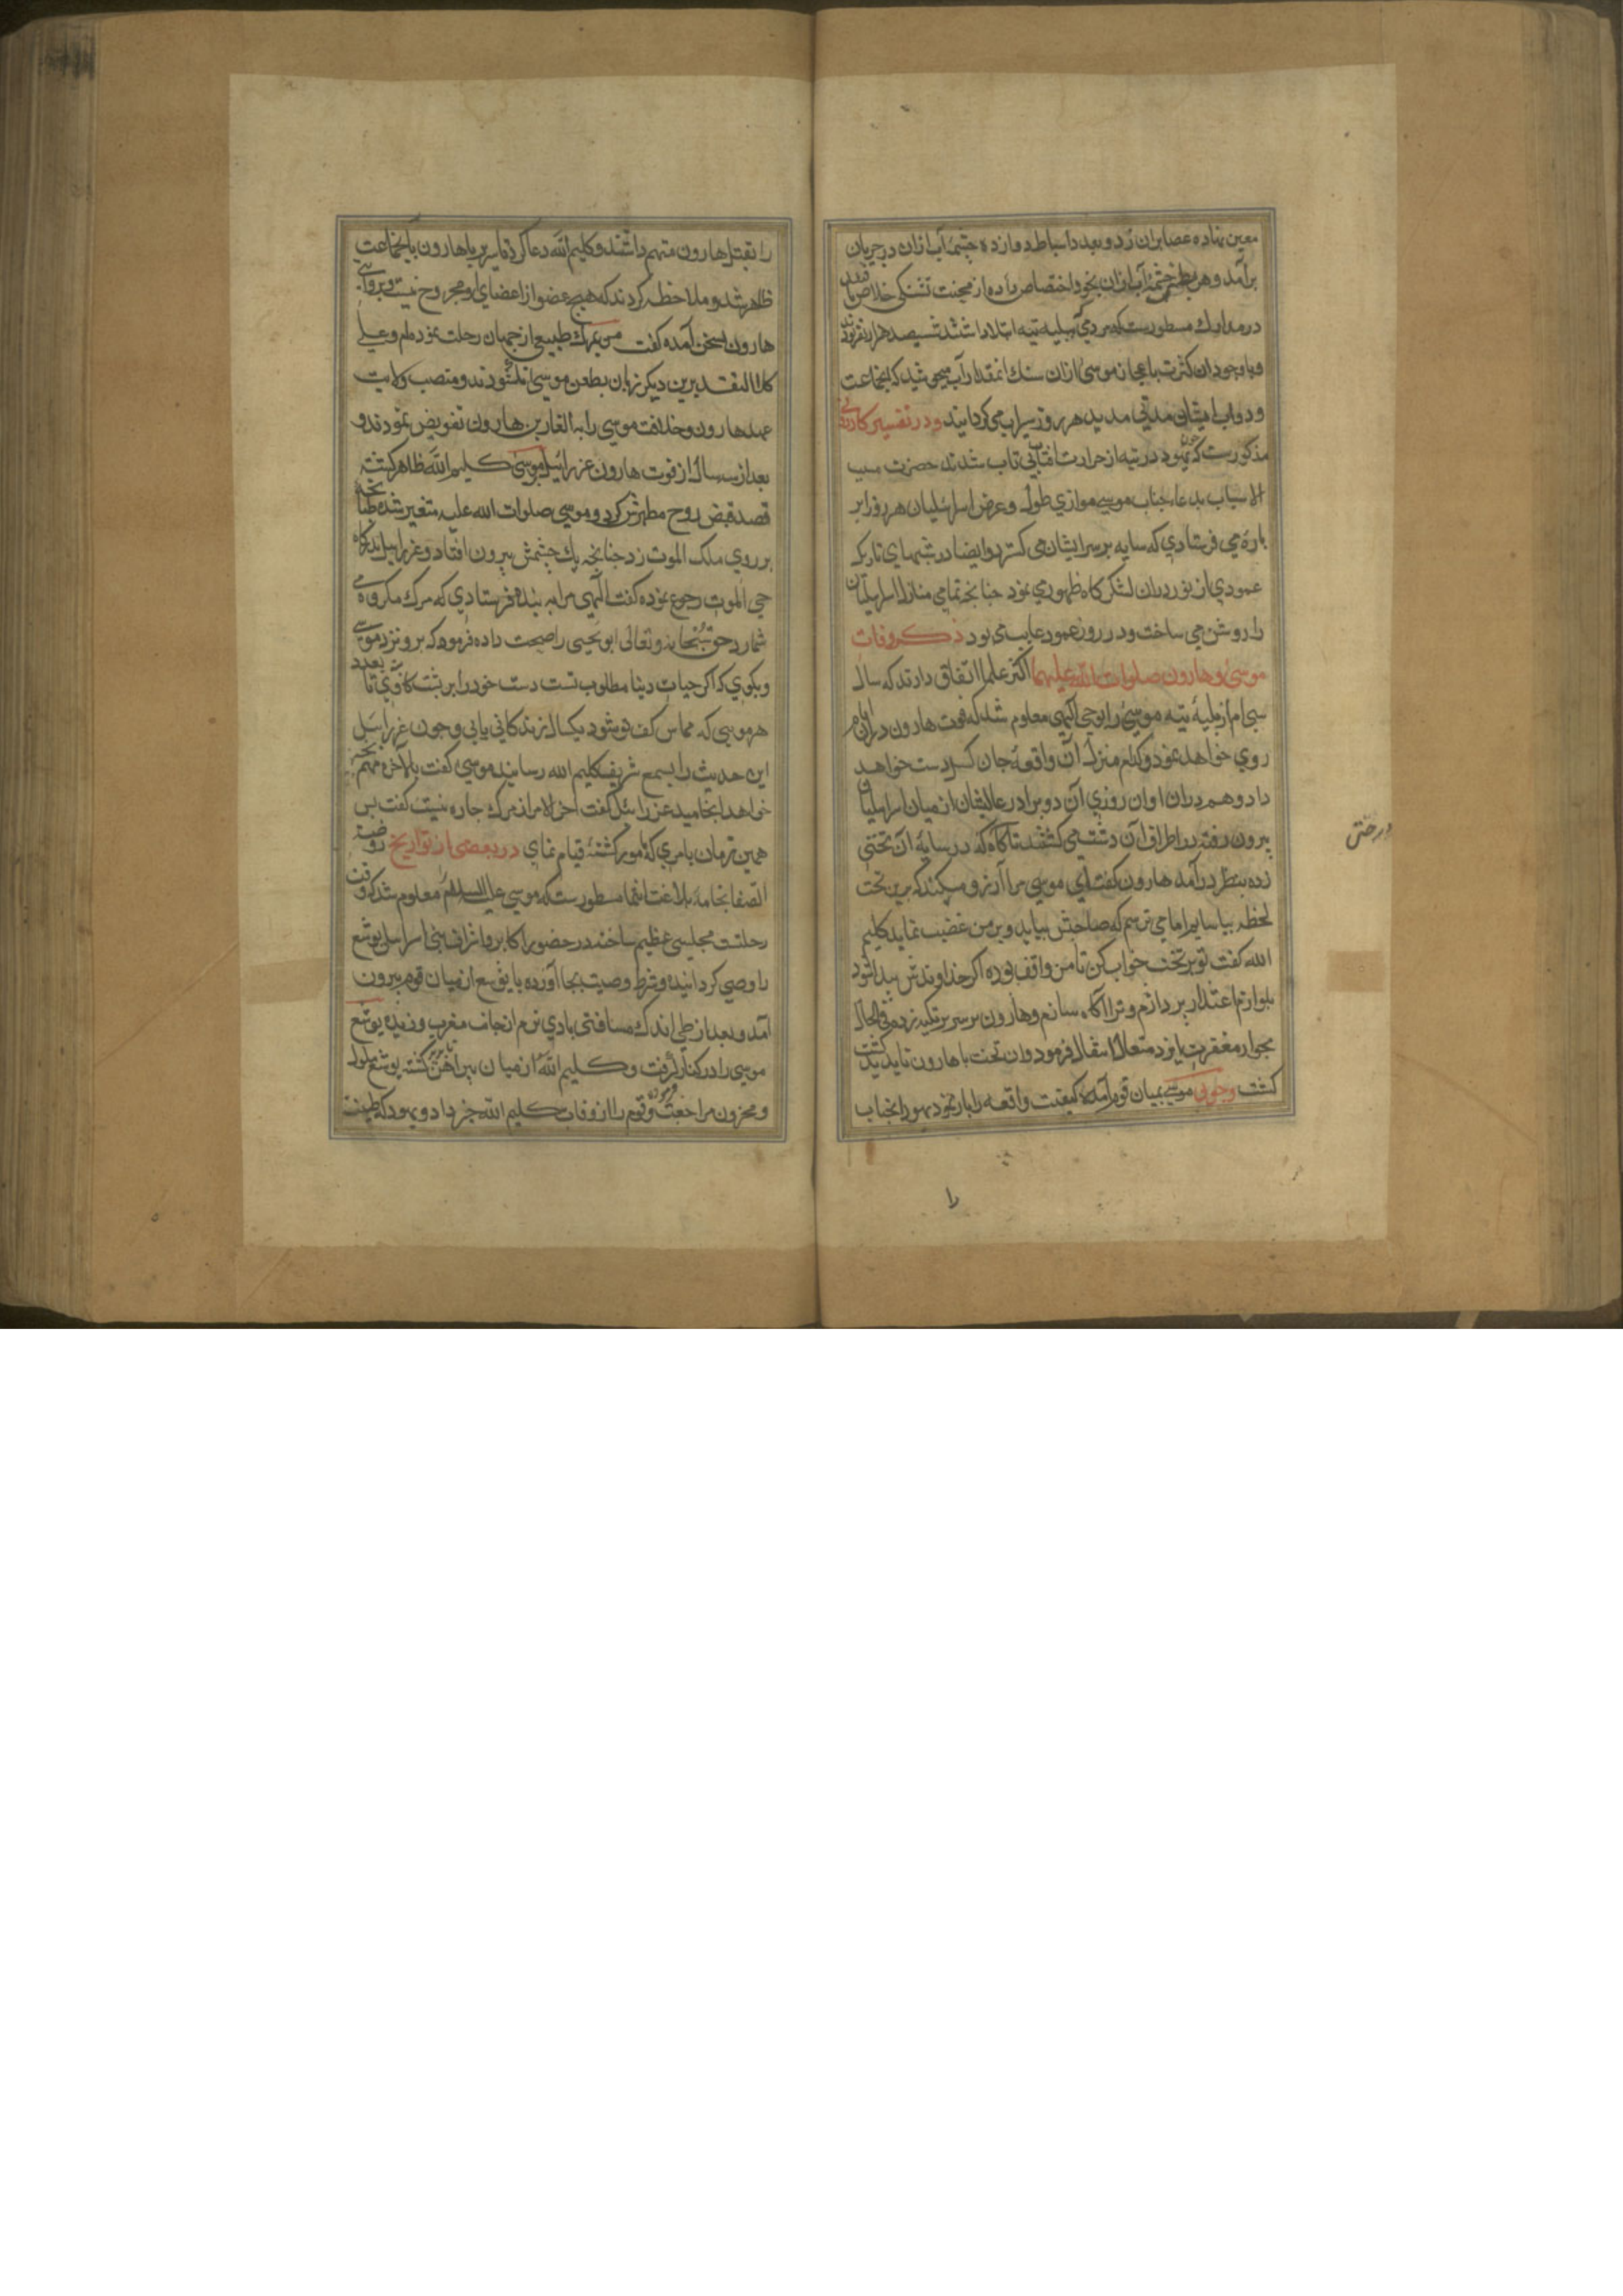 معین نهاده عصا بران زد و بعدد اسباط دوازده چشمهٔ آب ازان در جریان
برآمد و هر سبطی چشمهٔ آب ازان بخود اختصاص داده از محنت تشنکی خلاص
در مدارک مسطورست که مردمی که ببلیه تیه ابتلا داشتند ششصد هزار نفر بودند
و با وجود آن کثرت باعجاز موسی ازان سنک انمقدار آب میجوشید که انجماعت
و دواب ایشان مدتی مدید هر روز سیراب می کردانید و در تفسیر کازرونی
مذکورست که چون یهود در تیه از حرارت افتاب بی تاب شدند حضرت مسبب
الاسباب بدعاء جناب موسی موازی طول و عرض اسرائیلیان هر روز ابر
پارهٔ می فرستادی که سایه بر سر ایشان می کسترد و ایضا در شبهای تاریک
عمودی از نور دران لشکرکاه ظهور می نمود چنانچه تمامی منازل اسرائیلیان
را روشن می ساخت و در روز عمود غایب می بود ذکر وفات
موسی و هارون صلوات الله علیهما اکثر علما اتفاق دارند که سال
سی ام از بلیهٔ تیه موسی را بوحی الهی معلوم شد که فوت هارون دران ایام
روی خواهد نمود و کدام منزل آن واقعهٔ جان کسل دست خواهد
داد و هم دران اوان روزی آن دو برادر عالیشان از میان اسرائیلیان
بیرون رفته در اطراف آن دشت می کشتند تا کاه که در سایهٔ آن تختی
درختی
زده بنظر درآمد هارون کفت ای موسی مرا آرزو میکند که برین تخت
لحظهٔ بیاسایم اما می ترسم که صاحبش بیاید و بر من غضب نماید کلیم
الله کفت تو بر تخت خواب کن تا من واقف بوده اکر خداوندش پیدا شود
بلوازم اعتذار پردازم و ترا آکاه سازم و هارون بر سریر تکیه زده فی الحال
بجوار مغفرت ایزد متعال انتقال فرمود وان تخت با هارون ناپدید کشت
کشت و چون موسی بمیان قوم آمده کیفیت واقعه را باز نمود یهود انجناب
را
را بقتل هارون متهم داشتند و کلیم الله دعا کرد تا سریر با هارون بانجماعت
ظاهر شد و ملاحظه کردند که هیچ عضو از اعضای او مجروح نیست و بروایتی
هارون بسخن آمده کفت من بمرک طبیعی از جهان رحلت نموده ام و علی
کلا التقدیرین دیکر زبان بطعن موسی نکشودند و منصب ولایت
عهد هارون و خلافت موسی را بالغاربن هارون تفویض نمودند و
بعد از سه سال از فوت هارون عزرائیل بر موسی کلیم الله ظاهر کشته
قصد قبض روح مطهرش کرد و موسی صلوات الله علیه متغیر شده طبانچه
بر روی ملک الموت زد چنانچه یک چشمش بیرون افتاد و عزرائیل بدرکاه
حی لایموت رجوع نموده کفت الهی مرا به بنده فرستادی که مرک مکروه می
شمارد حق سبحانه و تعالی ابو یحیی را صحت داده فرمود که برو نزد موسی
و بکوی که اکر حیات دنیا مطلوب تست دست خود را بر پشت کاوی نه تا بعدد
هر موی که مماس کف تو شود یکسال زندکانی یابی و چون عزرائیل
این حدیث را بسمع شریف کلیم الله رسانید موسی کفت بالآخره مهم بچه
خواهد انجامید عزرائیل کفت اخر الامر از مرک چاره نیست کفت پس
همین زمان بامری که مامور کشتهٔ قیام نمای در بعضی از تواریخ روضة
الصفا بخامهٔ بلاغت انتما مسطورست که موسی علیه السلام معلوم شد که وقت
رحلتست مجلسی عظیم ساخته در حضور اکابر و اشراف بنی اسرائیل یوشع
را وصی کردانیده و شرط وصیت بجا آورده با یوشع از میان قوم بیرون
آمد و بعد از طی اندک مسافتی بادی نرم از جانب مغرب وزیده یوشع
موسی را در کنار کرفت و کلیم الله از میان پیراهن ناپدید کشته یوشع ملول
و محزون مراجعت نموده و قوم را از وفات کلیم الله خبر داد و یهود که طینت